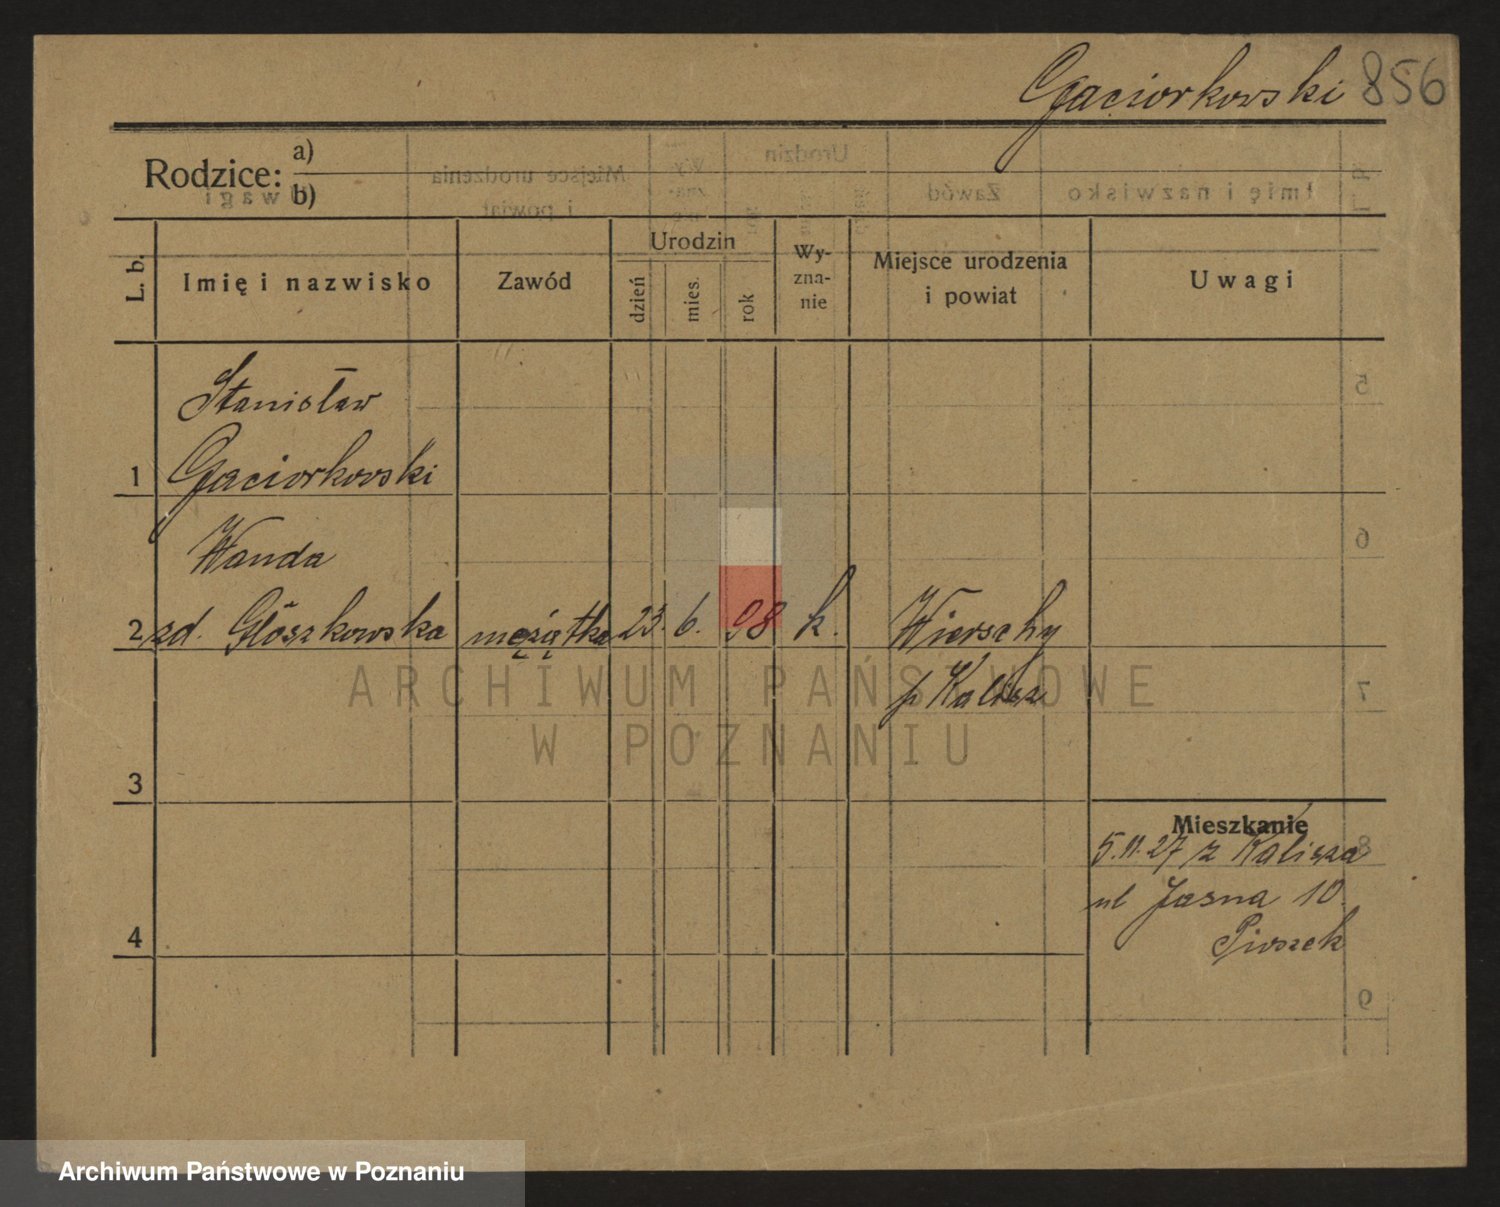 Gąciorkowski 856
Rodzice: a)
b)
L. b.
Imię i nazwisko
Zawód
Urodzin
dzień
mies.
rok
Wy-
zna-
nie
Miejsce urodzenia
i powiat
Uwagi
Stanisław
1 Gąciorkowski
Wanda
2 zd. Głószkowska mężątka 23. 6. 98 k. Wierschy
p Kalisz
3
Mieszkanie
5.11.27 z Kalisza
ul Jasna 10.
4
ARCHIWUM PAŃSTWOWE
W POZNANIU
Archiwum Państwowe w Poznaniu